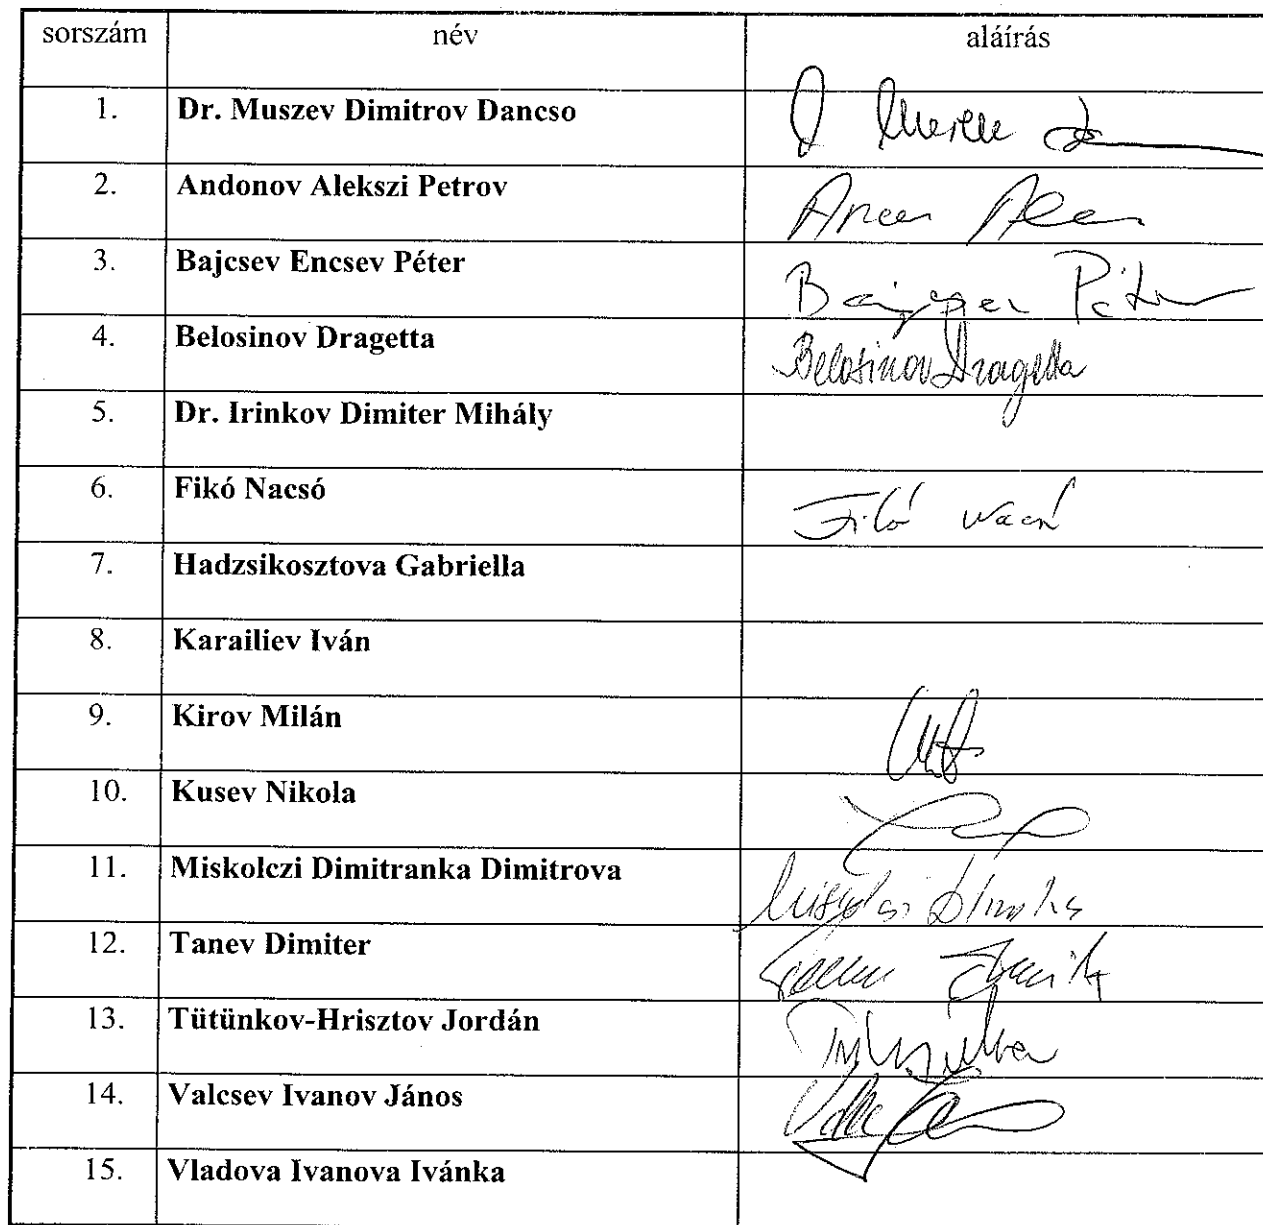 sorszám név aláírás
1. Dr. Muszev Dimitrov Dancso
2. Andonov Alekszi Petrov
3. Bajcsev Encsev Péter
4. Belosinov Dragetta Belosinov Dragetta
5. Dr. Irinkov Dimiter Mihály
6. Fikó Nacsó
7. Hadzsikosztova Gabriella
8. Karailiev Iván
9. Kirov Milán
10. Kusev Nikola
11. Miskolczi Dimitranka Dimitrova
12. Tanev Dimiter
13. Tütünkov-Hrisztov Jordán
14. Valcsev Ivanov János
15. Vladova Ivanova Ivánka